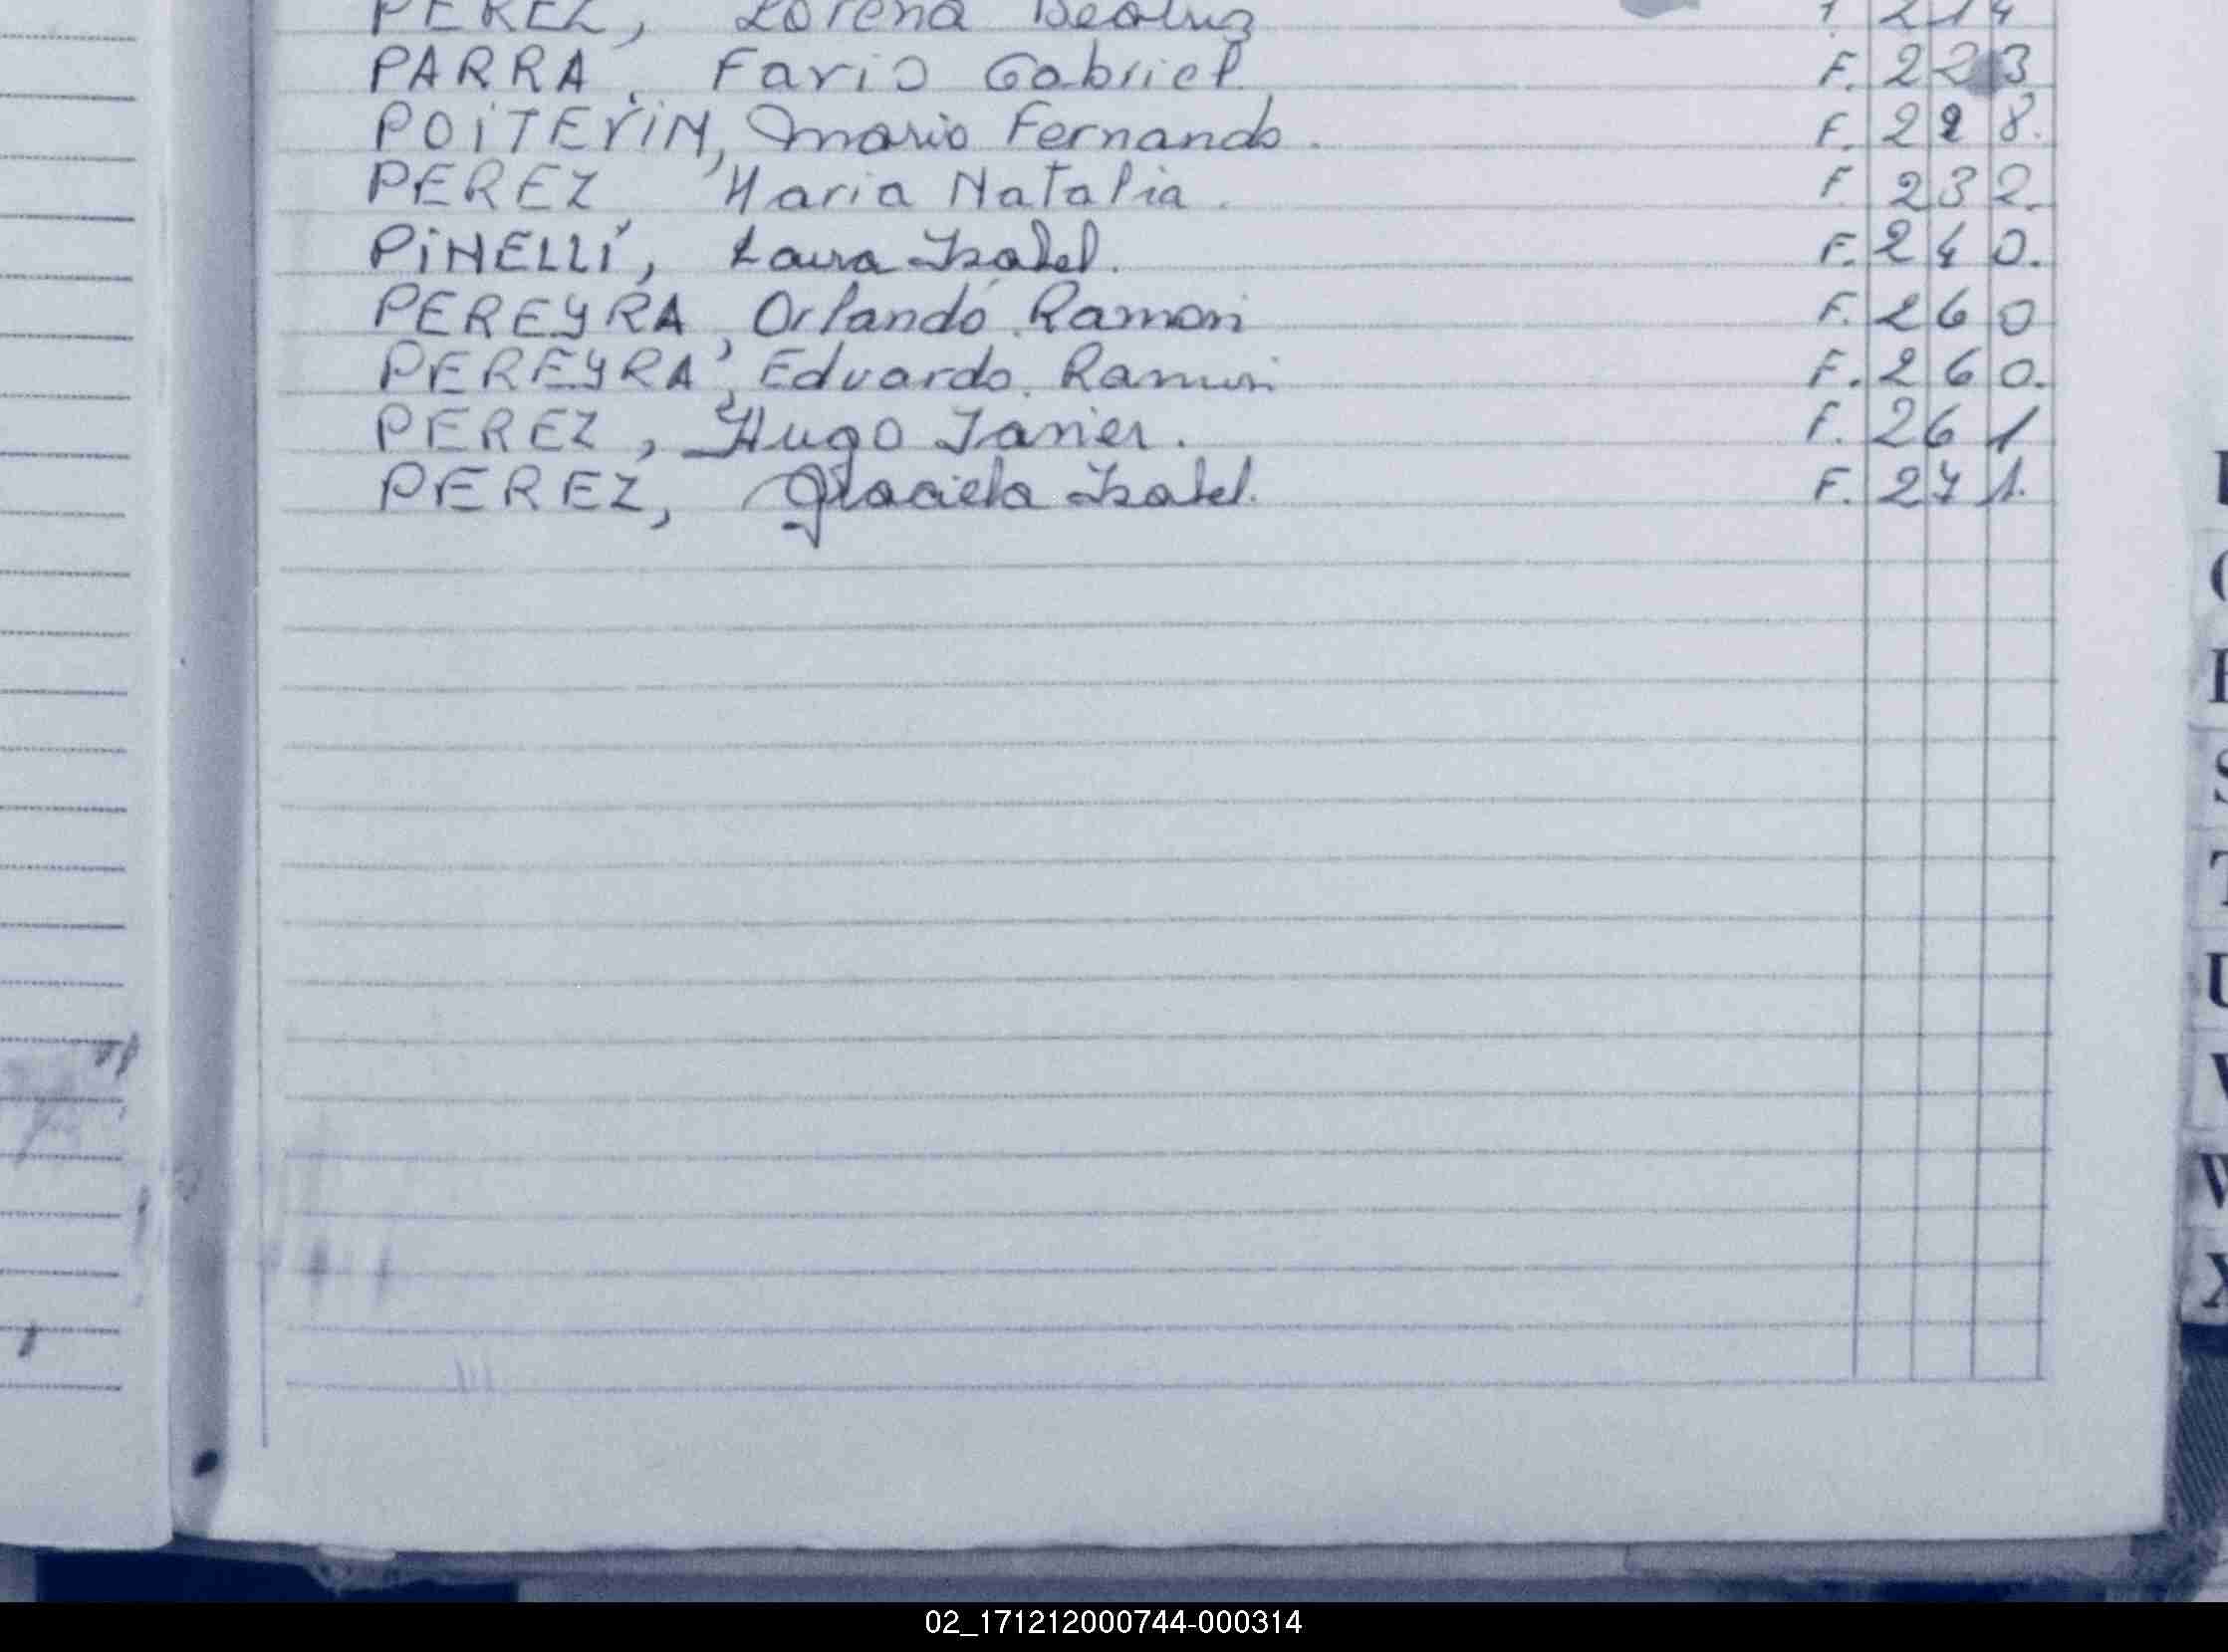 PEREZ, Lorena Beatriz F. 214
PARRA, Fario Gabriel F. 223
POiTEViN, Mario Fernando. F. 228.
PEREZ, Maria Natalia. F. 232.
PiNELLi, Laura Isabel. F. 240.
PEREYRA, Orlando Ramon F. 260
PEREYRA, Eduardo Ramon F. 260.
PEREZ, Hugo Javier. F. 261
PEREZ, Graciela Isabel. F. 271.
S
T
U
V
W
X
02_171212000744-000314